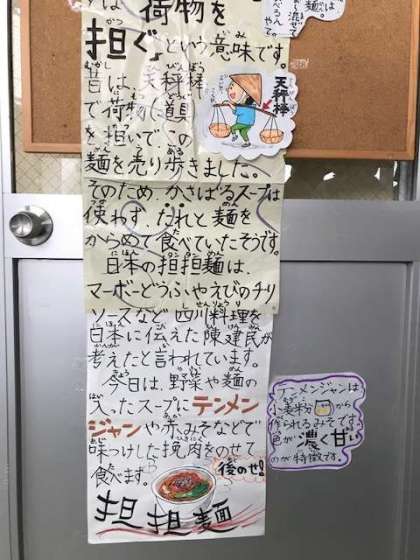 は「荷物を
担ぐ」という意味です。
昔は、天秤棒
で荷物に道具
を担いで、この
麺を売り歩きました。
そのため、かさばるスープは
使わず、だれと麺を
からめて食べていたそうです。
日本の担担麺は、
マーボーどうふやえびのチリ
ソースなど四川料理を
日本に伝えた陳建民が
考えたと言われています。
今日は、野菜や麺の
入ったスープにテンメン
ジャンや赤みそなどで
味つけした挽肉をのせて
食べます。
後のせ!
担担麺
天秤棒
麺は、
テンメンジャンは
小麦粉から
作られるみそです。
色が濃く甘い
のが特徴です。